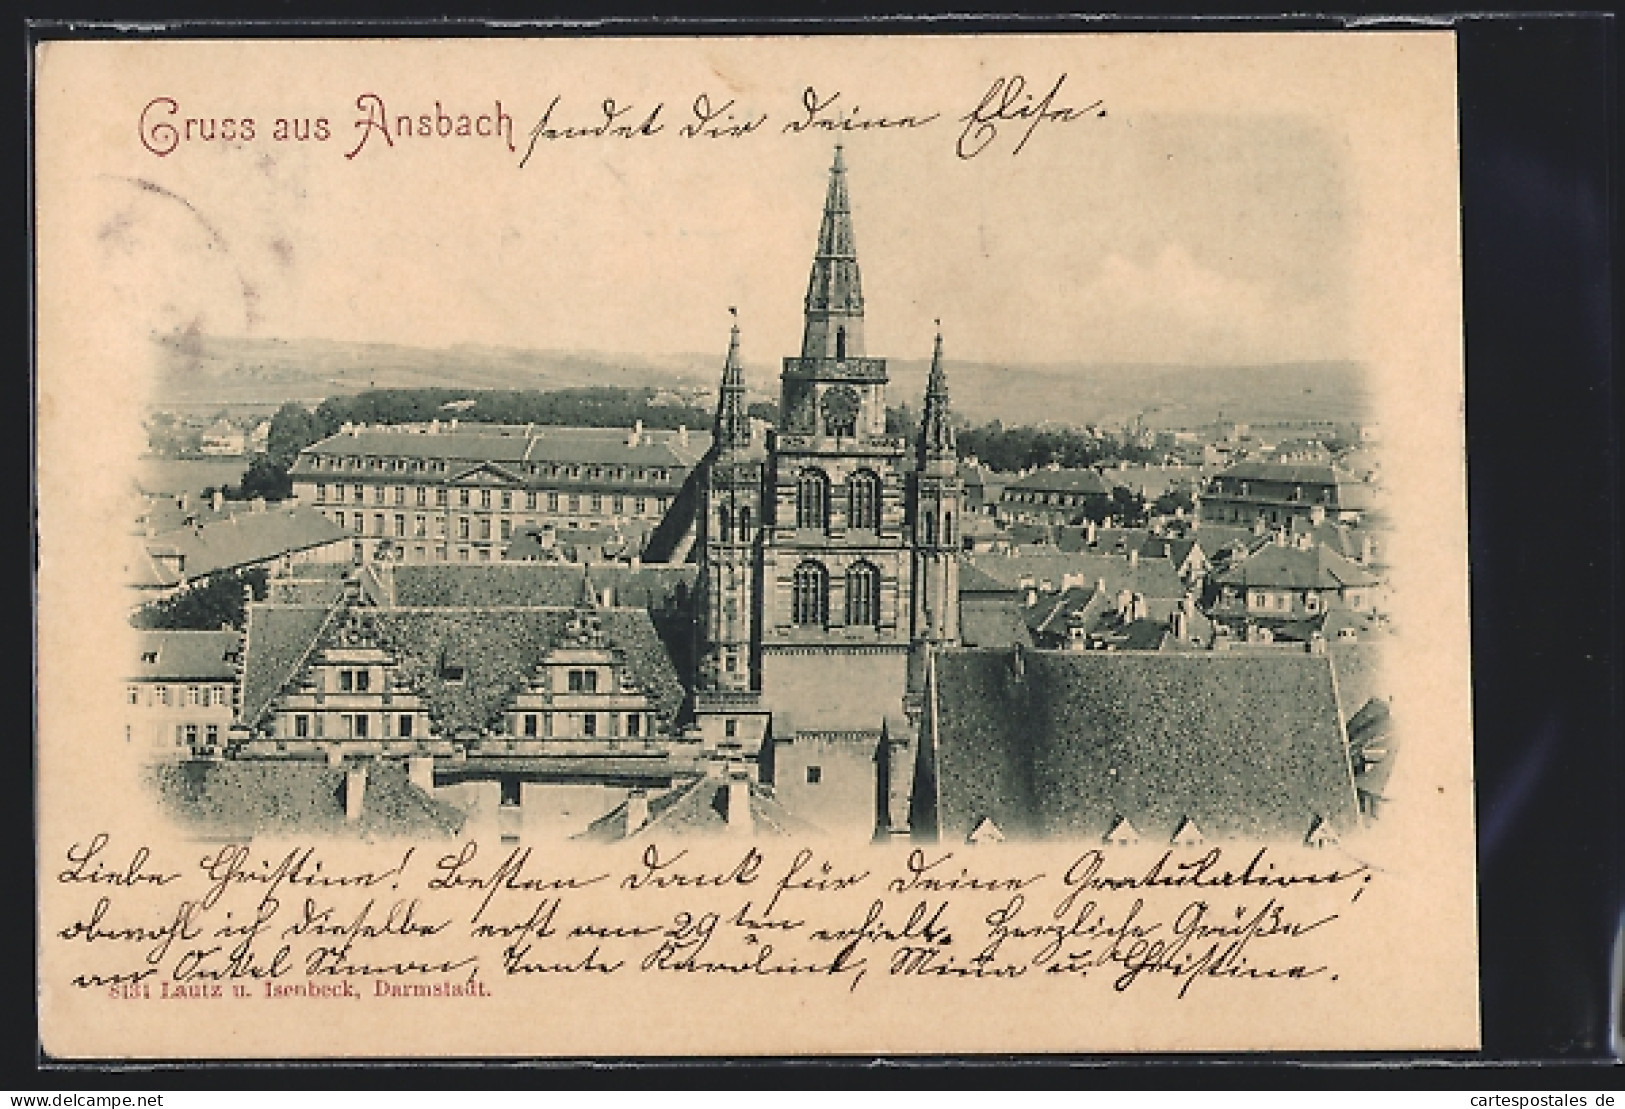 Gruss aus Ansbach sendet dir deine Elise.
Liebe Christine! Besten Dank für deine Gratulation,
obwohl ich dieselbe erst am 29ten erhielt. Herzliche Grüße
an Onkel Simon, Tante Karoline, Mina u. Christine.
8131 Lautz u. Isenbeck, Darmstadt.
www.cartespostales.eu
cartespostales de